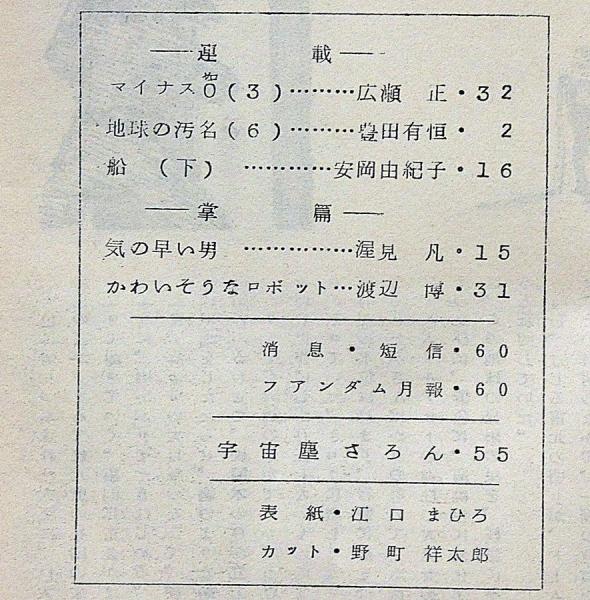 ――連載――
マイナス0(3)………広瀬 正・32
地球の汚名(6)………豊田有恒・ 2
船 (下) …………安岡由紀子・16
――掌篇――
気の早い男 ……………渥見 凡・15
かわいそうなロボット…渡辺 博・31
消息・短信・60
フアンダム月報・60
宇宙塵さろん・55
表紙・江口まひろ
カット・野町祥太郎